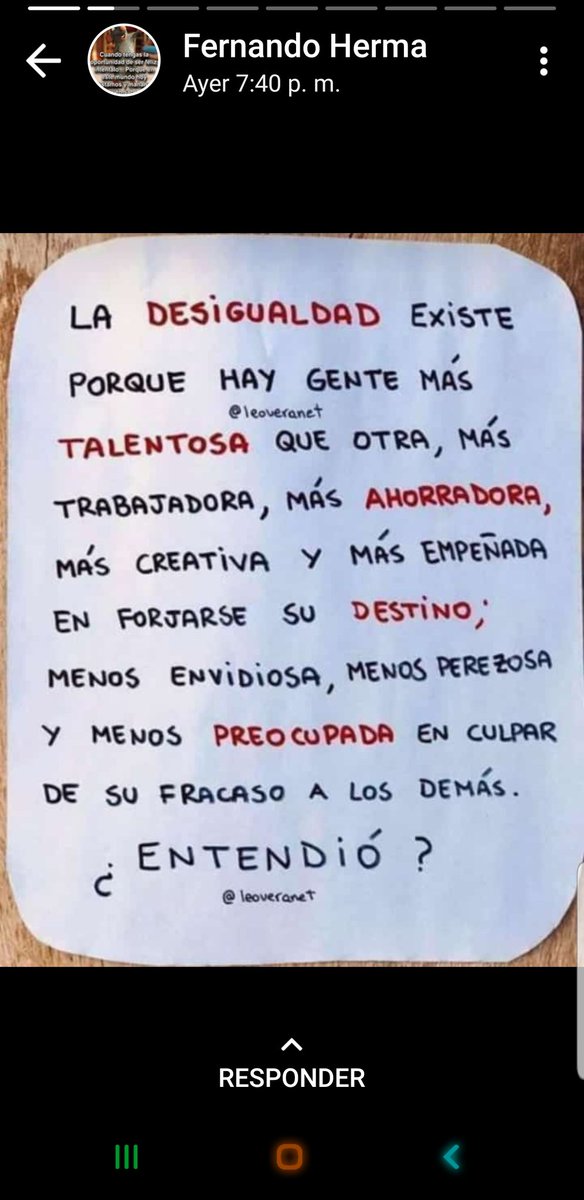 Fernando Herma
Ayer 7:40 p. m.
LA DESIGUALDAD EXISTE
PORQUE HAY GENTE MÁS
@leoveranet
TALENTOSA QUE OTRA, MÁS
TRABAJADORA, MÁS AHORRADORA,
MÁS CREATIVA Y MÁS EMPEÑADA
EN FORJARSE SU DESTINO;
MENOS ENVIDIOSA, MENOS PEREZOSA
Y MENOS PREOCUPADA EN CULPAR
DE SU FRACASO A LOS DEMÁS.
¿ENTENDIÓ?
@leoveranet
RESPONDER